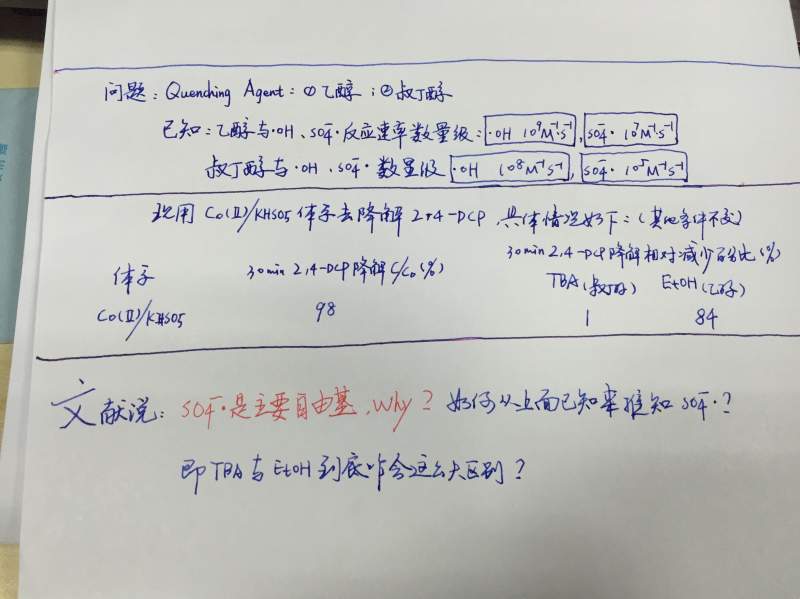 问题：Quenching Agent：①乙醇；②叔丁醇
已知：乙醇与·OH、SO4⁻·反应速率数量级：·OH 10⁹M⁻¹S⁻¹，SO4⁻· 10⁷M⁻¹S⁻¹
叔丁醇与·OH、SO4⁻·数量级 ·OH 10⁸M⁻¹S⁻¹，SO4⁻· 10⁵M⁻¹S⁻¹
现用 Co(Ⅱ)/KHSO5 体系去降解 2,4-DCP，具体情况如下：(其他条件不变)
体系 30min 2,4-DCP降解 C/C₀(%) 30min 2,4-DCP降解相对减少百分比(%)
TBA(叔丁醇) EtOH(乙醇)
Co(Ⅱ)/KHSO5 98 1 84
文献说：SO4⁻·是主要自由基，Why？如何从上面已知来推知 SO4⁻·？
即 TBA 与 EtOH 到底咋会这么大区别？